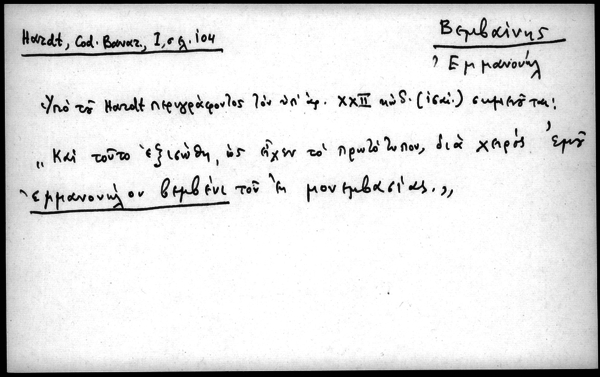 Hardt, Cod. Bavar., I, σελ. 104
Βεμβαίνης
Ἐμμανουήλ
Ὑπὸ τοῦ Hardt περιγράφοντος τὸν ὑπ' ἀρ. XXII κώδ. (ἰσαι.) σημειοῦται:
„Καὶ τοῦτο ἐξισώθη, ὡς εἶχεν τὸ πρωτότυπον, διὰ χειρός ἐμοῦ
ἐμμανουήλου βεμβένε τοῦ ἐκ μονεμβασίας.„